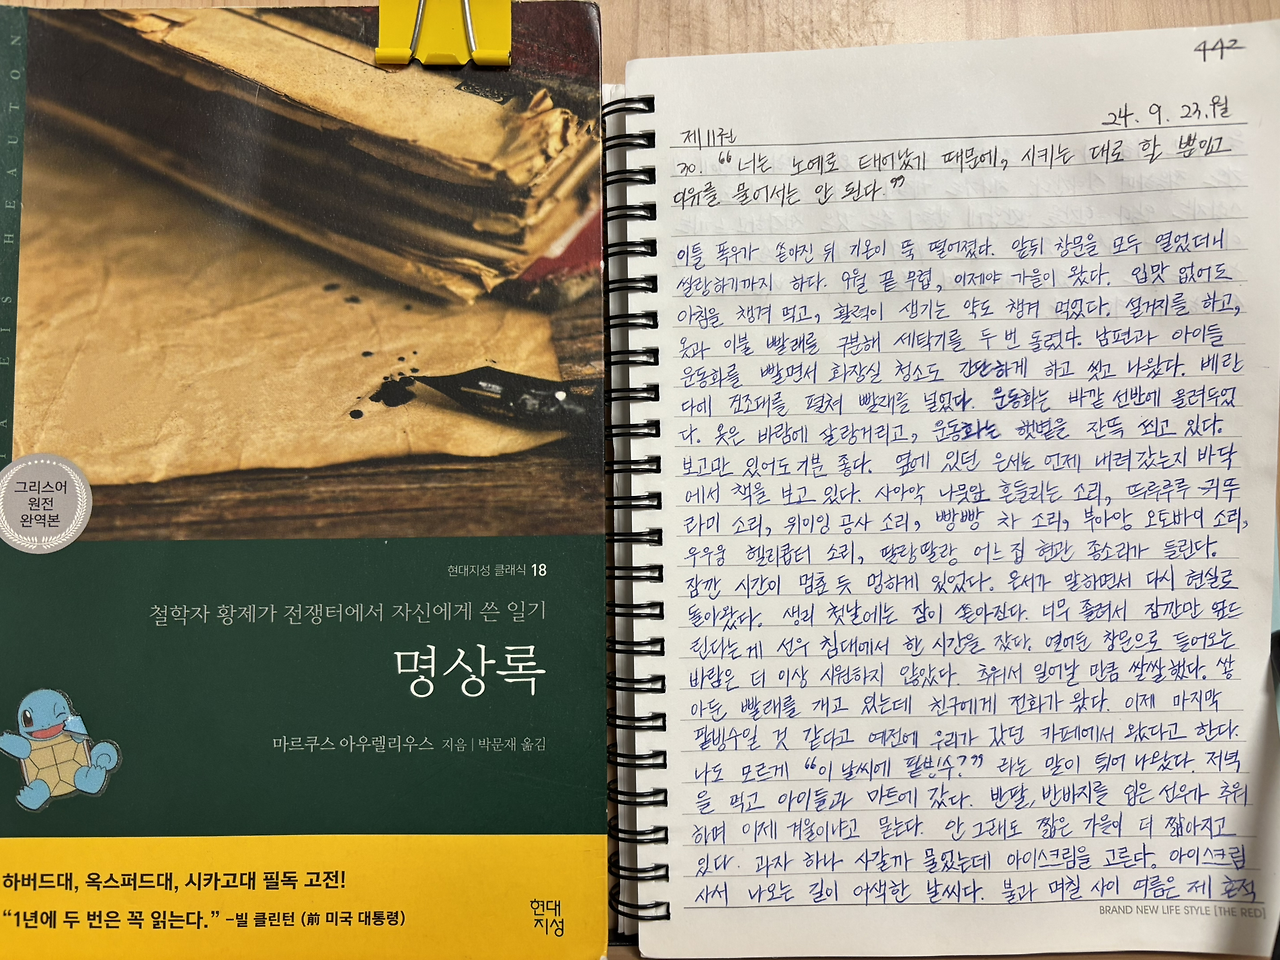 TA EIS HEAUTON
그리스어
원전
완역본
현대지성 클래식 18
철학자 황제가 전쟁터에서 자신에게 쓴 일기
명상록
마르쿠스 아우렐리우스 지음 | 박문재 옮김
하버드대, 옥스퍼드대, 시카고대 필독 고전!
“1년에 두 번은 꼭 읽는다.” –빌 클린턴 (前 미국 대통령)
현대
지성
442
24. 9. 23.월
제11권
30. “너는 노예로 태어났기 때문에, 시키는 대로 할 뿐이고
이유를 물어서는 안 된다.”
이틀 폭우가 쏟아진 뒤 기온이 뚝 떨어졌다. 앞뒤 창문을 모두 열었더니
쌀랑하기까지 하다. 9월 끝 무렵, 이제야 가을이 왔다. 입맛 없어도
아침을 챙겨 먹고, 활력이 생기는 약도 챙겨 먹었다. 설거지를 하고,
옷과 이불 빨래를 구분해 세탁기를 두 번 돌렸다. 남편과 아이들
운동화를 빨면서 화장실 청소도 간단하게 하고 씻고 나왔다. 베란
다에 건조대를 펼쳐 빨래를 널었다. 운동화는 바깥 선반에 올려두었
다. 옷은 바람에 살랑거리고, 운동화는 햇볕을 잔뜩 쬐고 있다.
보고만 있어도 기분 좋다. 옆에 있던 은서는 언제 내려갔는지 바닥
에서 책을 보고 있다. 사아악 나뭇잎 흔들리는 소리, 뜨루루루 귀뚜
라미 소리, 위이잉 공사 소리, 빵빵 차 소리, 부아앙 오토바이 소리,
우우웅 헬리콥터 소리, 딸랑딸랑 어느 집 현관 종소리가 들린다.
잠깐 시간이 멈춘 듯 멍하게 있었다. 은서가 말하면서 다시 현실로
돌아왔다. 생리 첫날에는 잠이 쏟아진다. 너무 졸려서 잠깐만 엎드
린다는 게 선우 침대에서 한 시간을 잤다. 열어둔 창문으로 들어오는
바람은 더 이상 시원하지 않았다. 추워서 일어날 만큼 쌀쌀했다. 쌓
아둔 빨래를 개고 있는데 친구에게 전화가 왔다. 이제 마지막
팥빙수일 것 같다고 예전에 우리가 갔던 카페에서 왔다고 한다.
나도 모르게 “이 날씨에 팥빙수?” 라는 말이 튀어 나왔다. 저녁
을 먹고 아이들과 마트에 갔다. 반팔, 반바지를 입은 선우가 추워
하며 이제 겨울이냐고 묻는다. 안 그래도 짧은 가을이 더 짧아지고
있다. 과자 하나 사갈까 물었는데 아이스크림을 고른다. 아이스크림
사서 나오는 길이 어색한 날씨다. 불과 며칠 사이 여름은 제 흔적
BRAND NEW LIFE STYLE [THE RED]